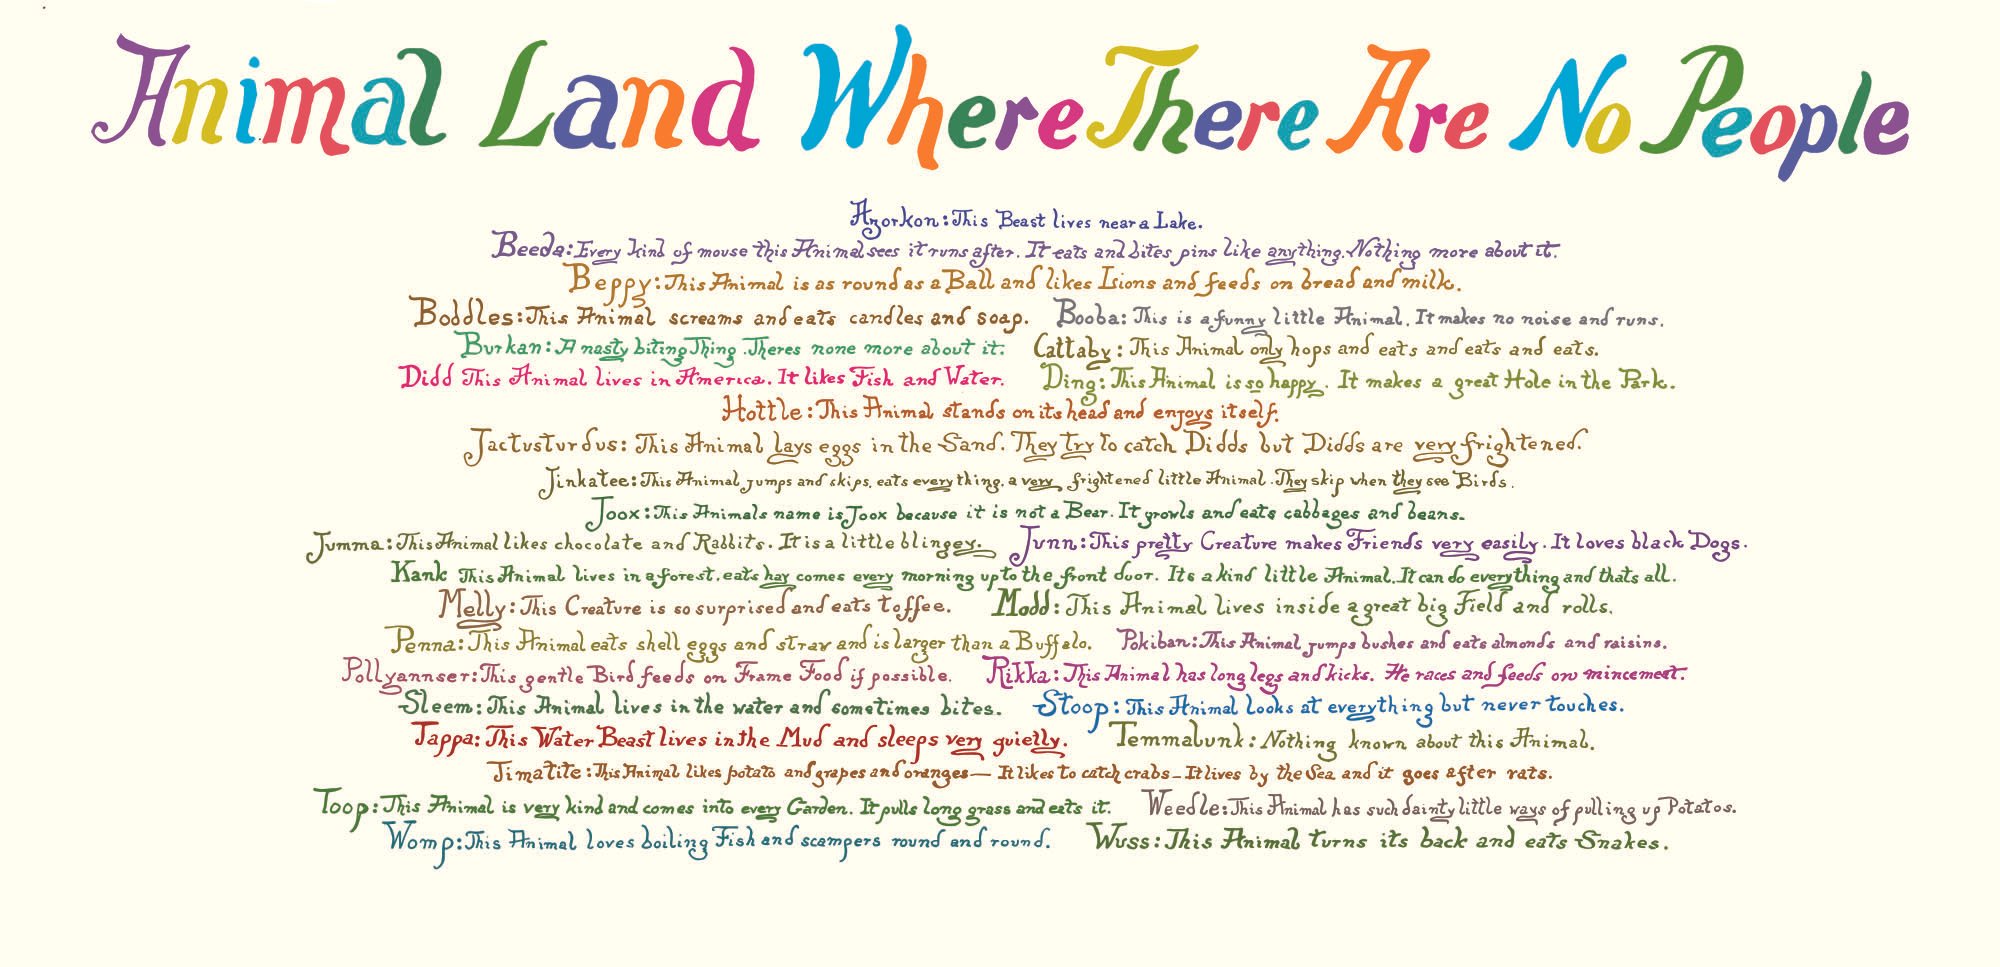 Animal Land Where There Are No People
Azorkon: This Beast lives near a Lake.
Beeda: Every kind of mouse this Animal sees it runs after. It eats and bites pins like anything. Nothing more about it.
Beppy: This Animal is as round as a Ball and likes Lions and feeds on bread and milk.
Boddles: This Animal screams and eats candles and soap. Booba: This is a funny little Animal. It makes no noise and runs.
Burkan: A nasty biting Thing. Theres none more about it. Cattaby: This Animal only hops and eats and eats and eats.
Didd This Animal lives in America. It likes Fish and Water. Ding: This Animal is so happy. It makes a great Hole in the Park.
Hottle: This Animal stands on its head and enjoys itself.
Jactusturdus: This Animal lays eggs in the Sand. They try to catch Didds but Didds are very frightened.
Jinkatee: This Animal jumps and skips, eats everything, a very frightened little Animal. They skip when they see Birds.
Joox: This Animals name is Joox because it is not a Bear. It growls and eats cabbages and beans.
Jumma: This Animal likes chocolate and Rabbits. It is a little blingey. Junn: This pretty Creature makes Friends very easily. It loves black Dogs.
Kank This Animal lives in a forest, eats hay comes every morning up to the front door. Its a kind little Animal. It can do everything and thats all.
Melly: This Creature is so surprised and eats toffee. Modd: This Animal lives inside a great big Field and rolls.
Penna: This Animal eats shell eggs and straw and is larger than a Buffalo. Pokiban: This Animal jumps bushes and eats almonds and raisins.
Pollyannser: This gentle Bird feeds on Frame Food if possible. Rikka: This Animal has long legs and kicks. He races and feeds on mincemeat.
Sleem: This Animal lives in the water and sometimes bites. Stoop: This Animal Looks at everything but never touches.
Tappa: This Water Beast lives in the Mud and sleeps very quietly. Temmalunk: Nothing known about this Animal.
Timatite: This Animal likes potato and grapes and oranges— It likes to catch crabs– It lives by the Sea and it goes after rats.
Toop: This Animal is very kind and comes into every Garden. It pulls long grass and eats it. Weedle: This Animal has such dainty little ways of pulling up Potatos.
Womp: This Animal loves boiling Fish and scampers round and round. Wuss: This Animal turns its back and eats Snakes.